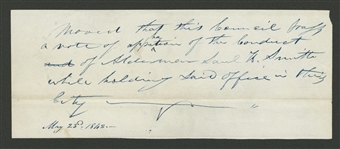 Moved that this Council pass
a vote of appro of the Conduct
of Alderman Saml H. Smith
while holding Said Office in this
City
May 25th. 1842